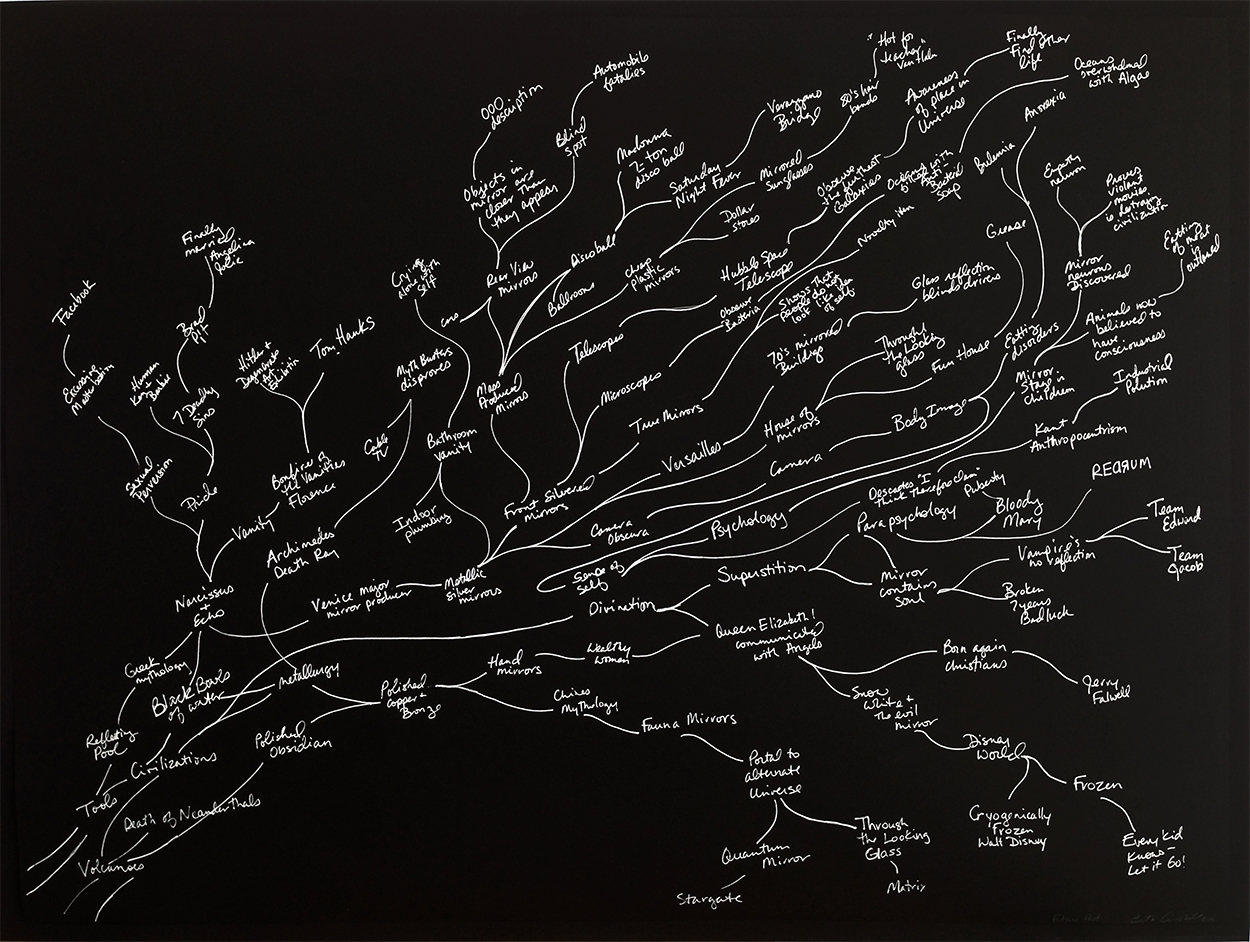 Facebook
Excessive
Masturbation
Sexual
Perversion
Finally
married
Angelica
Jolie
Brad
Pitt
7 Deadly
Sins
Human
Ken +
Barbie
Pride
Hitler +
Degenerate
Art
Exhibition
Tom Hanks
Bonfire of
the Vanities
Florence
Vanity
Narcissus
+
Echo
Greek
mythology
Reflecting
Pool
Black Bowls
of water
Tools
Civilizations
Death of Neanderthals
Volcanoes
Polished
Obsidian
Metallurgy
Archimedes
Death Ray
Cable
TV
Myth Busters
disproves
Venice major
mirror producer
Metallic
silver
mirrors
Indoor
plumbing
Bathroom
vanity
Crying
alone with
self
cars
Rear View
mirrors
Objects in
mirror are
closer than
they appear
OOO
description
Blind
spot
Automobile
fatalies
Mass
Produced
Mirrors
Discoball
Madonna
2-ton
disco ball
Saturday
Night Fever
Varazzano
Bridge
Ballrooms
cheap
plastic
mirrors
Dollar
stores
Mirrored
Sunglasses
80's hair
bands
"Hot for
teacher"
Van Halen
Front Silvered
mirrors
Telescopes
Hubble Space
Telescope
Observe
the furthest
Galaxies
Awareness
of place in
Universe
Finally
Find other
life
Microscopes
Observe
Bacteria
Obsessed with
Anti-
Bacterial
Soap
Oceans
overwhelmed
with Algae
True Mirrors
Shows that
people do not
look like when
of self
Novelty item
Versailles
70's mirrored
Buildings
Glass reflection
blinds drivers
House of
mirrors
Through
the Looking
glass
Fun House
Grease
Camera
Obscura
Camera
Body Image
Eatting
disorders
Bulemia
Anorexia
Psychology
Sense of
self
Mirror
Stage in
children
Mirror
neurons
Discovered
Empathy
neuron
Proves
violent
movies
is destroying
civilization
Animals now
believed to
have
consciousness
Eatting
of meat
outlawed
Descartes "I
think therefore I am"
Kant
Anthropocentrism
Industrial
Polution
Divination
Superstition
Parapsychology
Puberty
Bloody
Mary
REDRUM
Mirror
contains
soul
Vampire's
no reflection
Team
Edwind
Team
Jacob
Broken
7 years
Bad luck
Polished
copper +
Bronze
Hand
mirrors
Wealthy
women
Queen Elizabeth I
communicates
with Angels
Born again
christians
Jerry
Falwell
Snow
White +
the evil
mirror
Disney
World
Cryogenically
Frozen
Walt Disney
Frozen
Every kid
knows –
Let it Go!
Chines
Mythology
Fauna Mirrors
Portal to
alternate
Universe
Quantum
Mirror
Stargate
Through
the Looking
Glass
Matrix